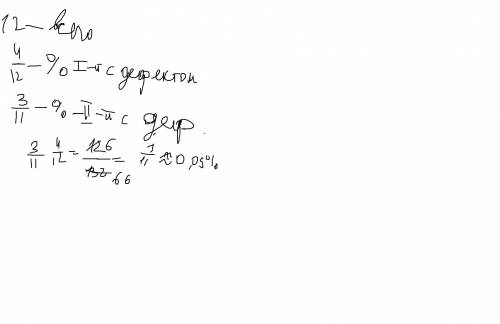 12 – всего
4/12 – % I-й с дефектом
3/11 – % – II-й с деф.
3/11 4/12 = 126/132 66 = 1/11 ≈ 0,09%